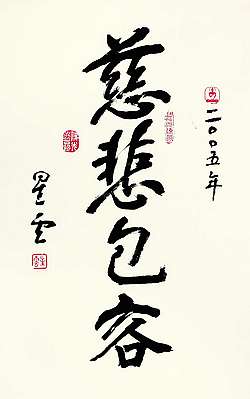 二〇〇五年
慈悲包容
星雲